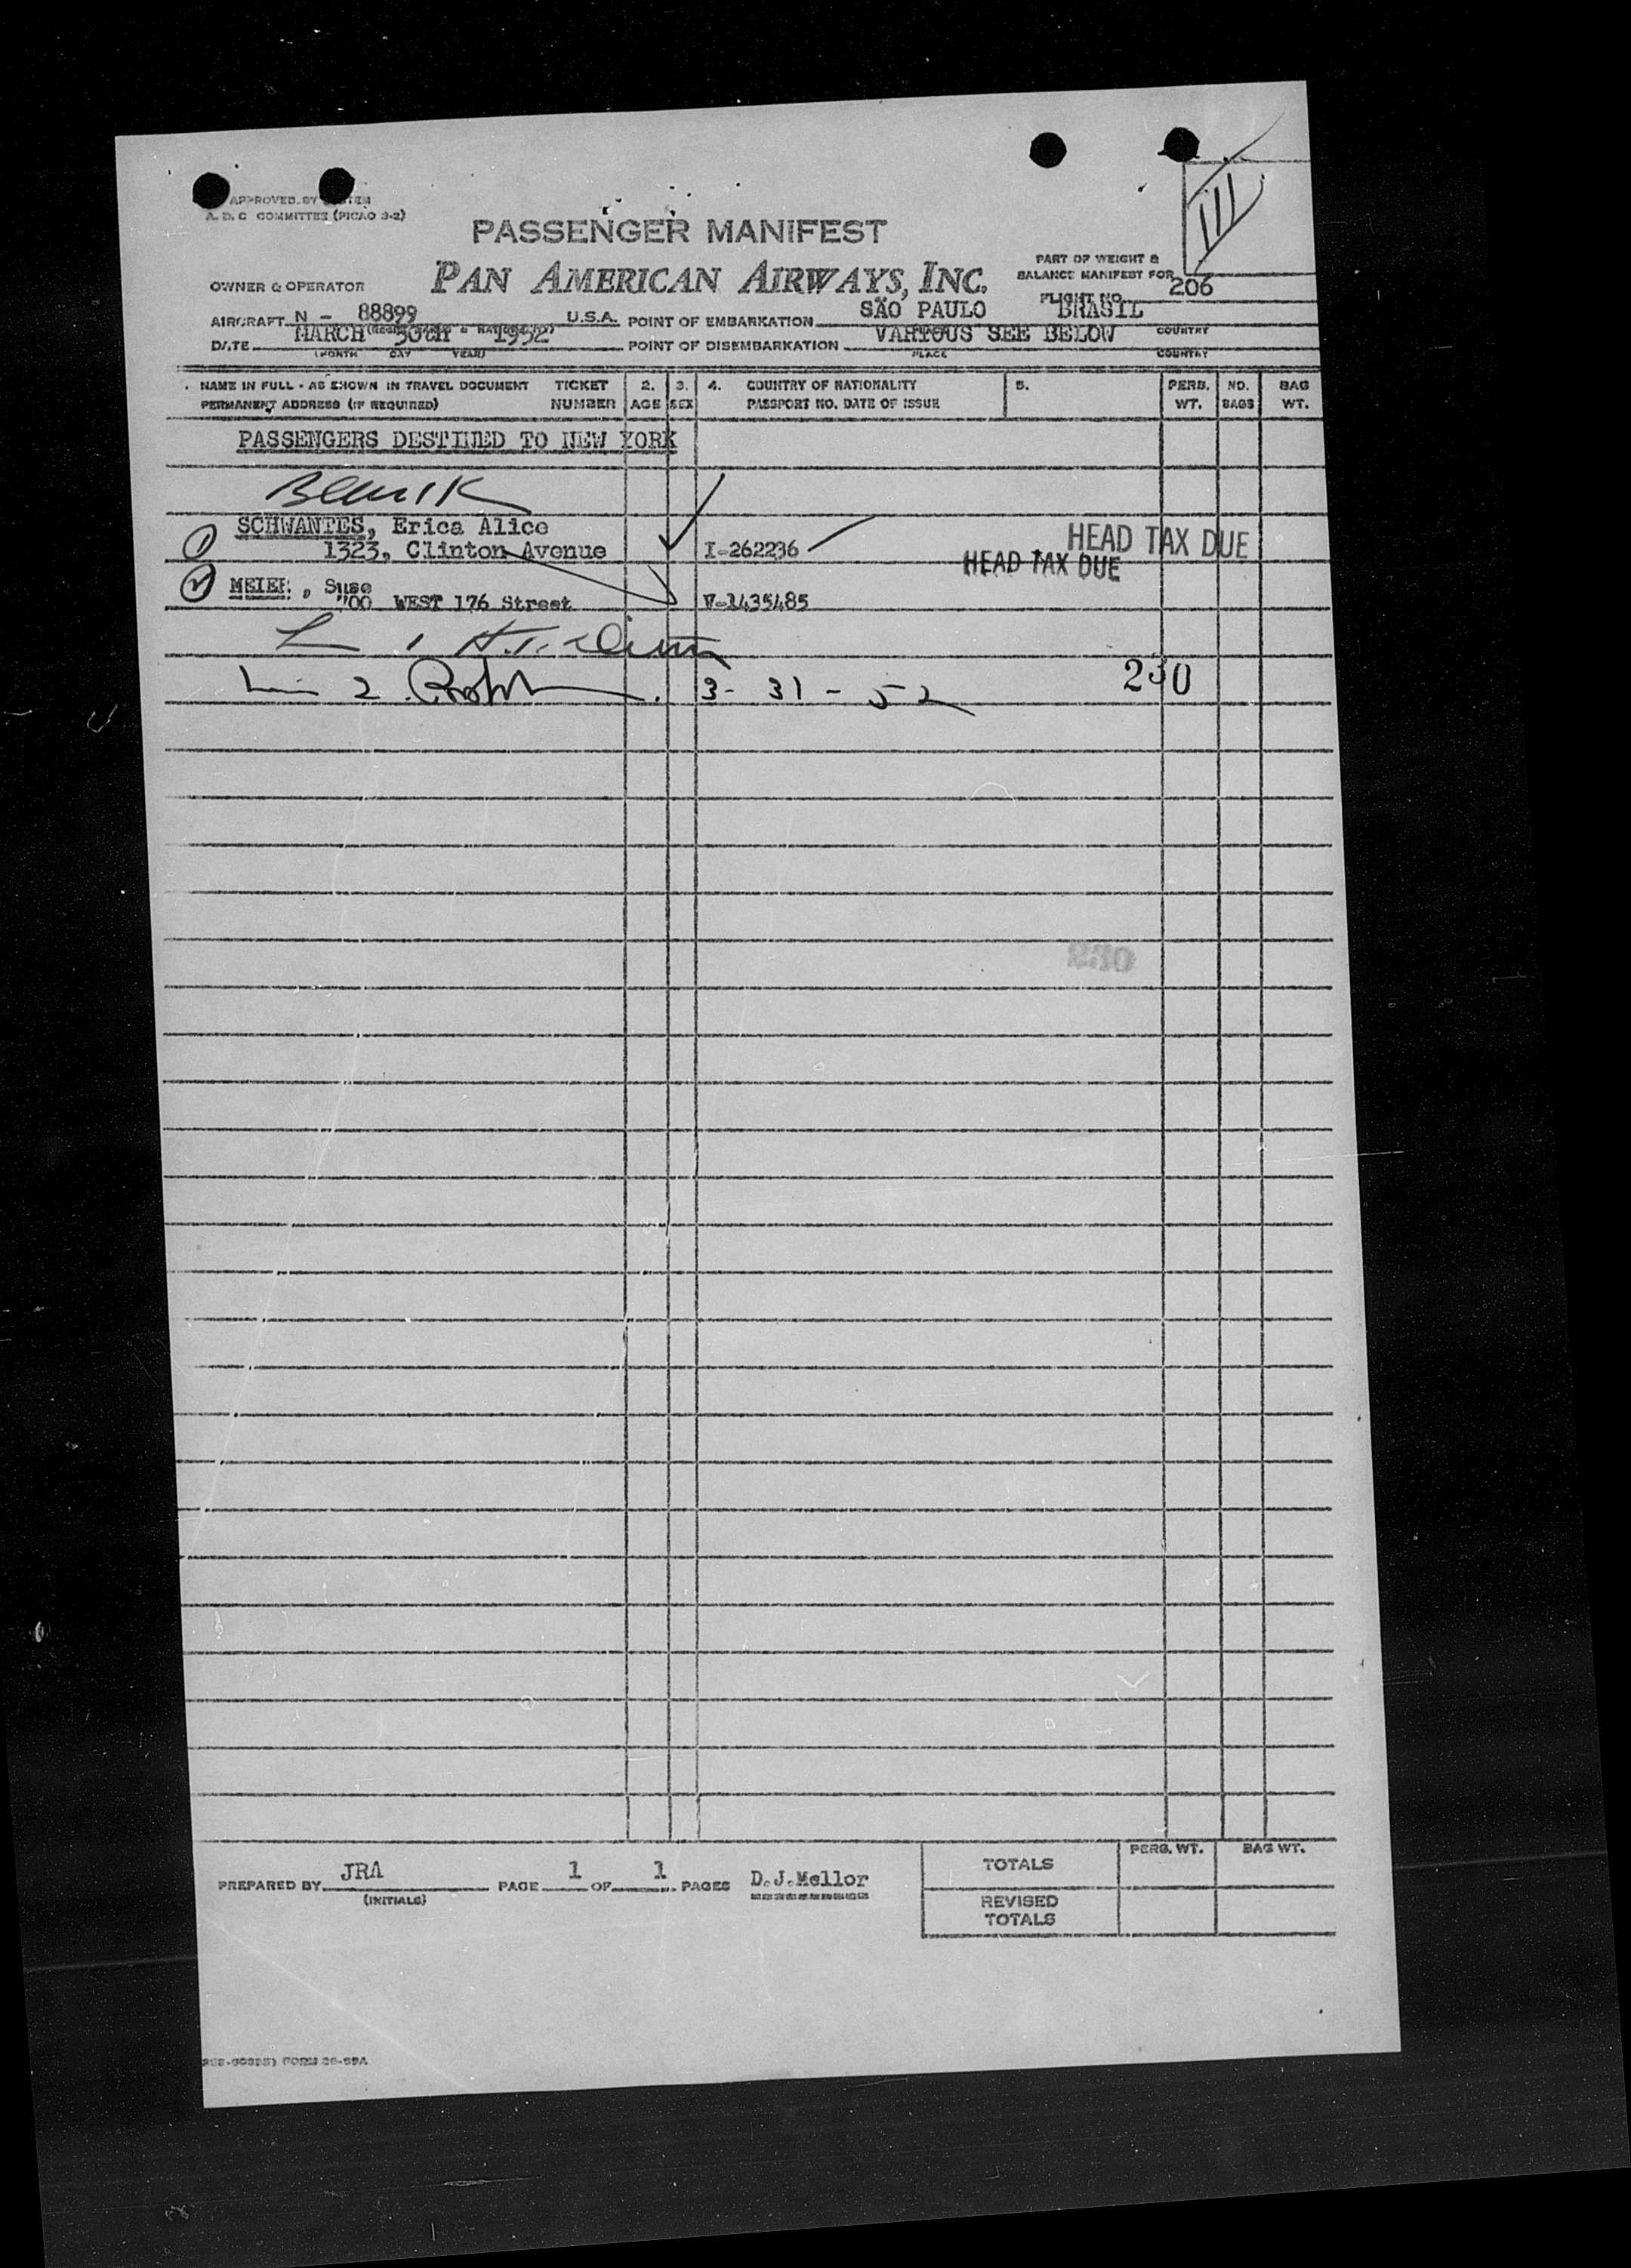 APPROVED BY SYSTEM
A. D. C COMMITTEE (PICAO 3-2)
PASSENGER MANIFEST
PART OF WEIGHT &
BALANCE MANIFEST FOR
OWNER & OPERATOR PAN AMERICAN AIRWAYS, INC.
FLIGHT NO. 206
AIRCRAFT N - 88899 U.S.A. POINT OF EMBARKATION SÃO PAULO BRASIL
COUNTRY
DATE MARCH 30th 1952 POINT OF DISEMBARKATION VARIOUS SEE BELOW
(MONTH DAY YEAR) PLACE COUNTRY
NAME IN FULL - AS SHOWN IN TRAVEL DOCUMENT TICKET 2. 3. 4. COUNTRY OF NATIONALITY 5. PERS. NO. BAG
PERMANENT ADDRESS (IF REQUIRED) NUMBER AGE SEX PASSPORT NO. DATE OF ISSUE WT. BAGS WT.
PASSENGERS DESTINED TO NEW YORK
1 SCHWANTES, Erica Alice
1323, Clinton Avenue I-262236 HEAD TAX DUE
HEAD TAX DUE
2 MEIER, Suse
700 WEST 176 Street V-1435485
3 - 31 - 52 230
230
PREPARED BY JRA PAGE 1 OF 1 PAGES D.J.Mellor
(INITIALS)
TOTALS PERS. WT. BAG WT.
REVISED
TOTALS